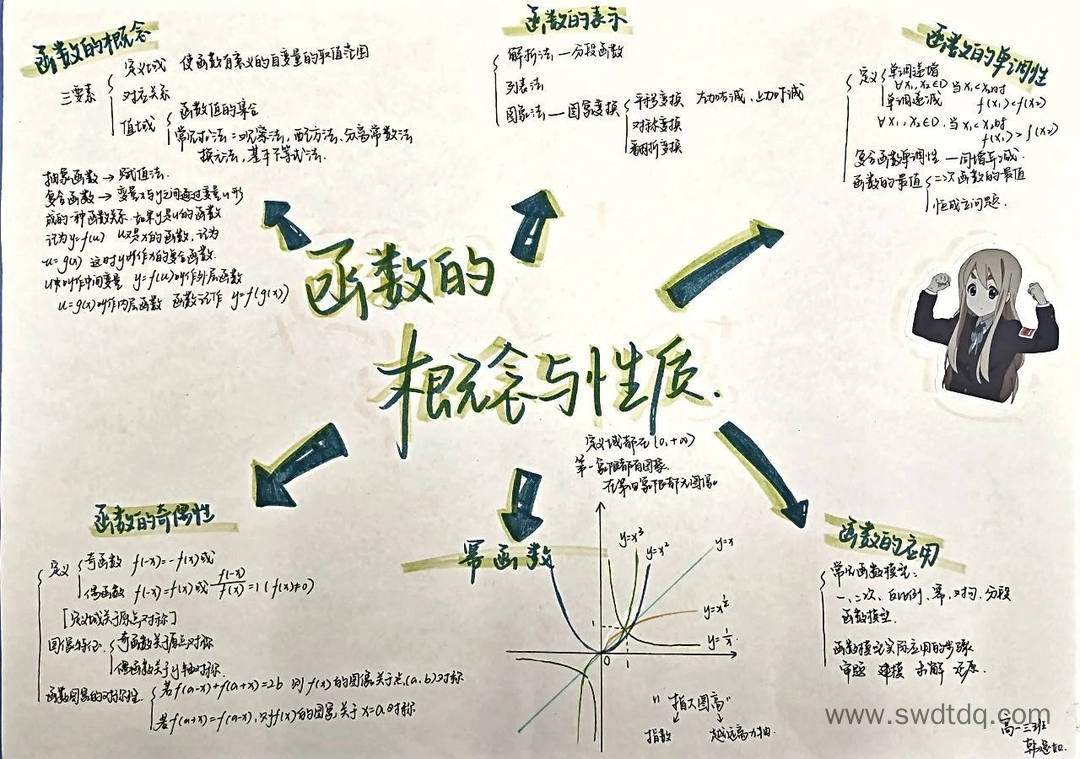 函数的概念
三要素
定义域 使函数有意义的自变量的取值范围
对应关系
值域
函数值的集合
常见求法：观察法，配方法，分离常数法
换元法，基本不等式法.
抽象函数 → 赋值法.
复合函数 → 变量x与y之间通过变量u形
成的一种函数关系. 如果y是u的函数
记为y=f(u) u又是x的函数，记为
u=g(x) 这时y叫作x的复合函数.
u叫作中间变量 y=f(u)叫作外层函数
u=g(x)叫作内层函数 函数记作 y=f(g(x))
函数的表示
解析法—分段函数
列表法
图象法—图象变换
平移变换 左加右减，上加下减
对称变换
翻折变换
函数的单调性
定义
单调递增
∀x₁,x₂∈D 当x₁<x₂时
f(x₁)<f(x₂)
单调递减
∀x₁,x₂∈D. 当x₁<x₂时
f(x₁)>f(x₂)
复合函数单调性—同增异减.
函数的最值
二次函数的最值
恒成立问题.
函数的
概念与性质.
函数的奇偶性
定义
奇函数 f(-x)=-f(x)或
偶函数 f(-x)=f(x)或 f(-x)/f(x)=1 (f(x)≠0)
[定义域关于原点对称]
图像特征：
奇函数关于原点对称
偶函数关于y轴对称.
函数图象的对称性
若f(a-x)+f(a+x)=2b 则f(x)的图象关于点(a,b)对称
若f(a+x)=f(a-x)，则f(x)的图象关于x=a对称
幂函数
定义域都在(0,+∞)
第一象限都有图象.
在第四象限都无图像。
y=x³
y=x²
y=x
y=x^½
y=1/x.
1
0
1
"指大图高"
指数
越远离x轴.
函数的应用
常见函数模型：
一、二次、反比例、幂、对勾、分段
函数模型.
函数模型实际应用的步骤
审题 建模 求解 还原.
www.swdtdq.com
高一三班